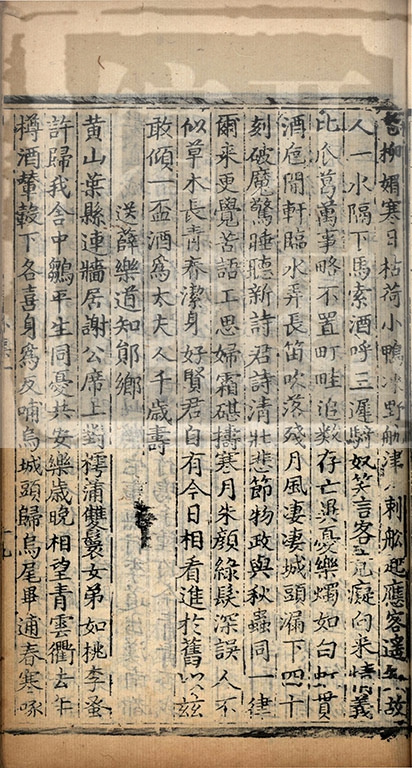 柳媚寒日枯荷小鴨凍野航津 刺船起應客遥 故
人一水隔下馬索酒呼三遲 奴笑言客 癡向來情義
比瓜葛萬事略不置町畦追數存亡異憂樂燭如白虹貫
酒巵開軒臨水弄長笛吹落殘月風凄凄城頭漏下四十
刻破魔驚睡聽新詩君詩清壯悲節物政與秋蟲同一律
爾来更覺苦語工思婦霜碪擣寒月朱顔綠髮深誤人不
似草木長青春潔身好賢君自有今日相看進於舊以兹
敢傾一盃酒爲太夫人千歲壽
送薛樂道知鄖鄉
黄山葉縣連牆居謝公席上對樗蒲雙鬟女弟如桃李蚤
許歸我舍中鶵平生同憂共安樂歲晚相望青雲衢去年
樽酒輦轂下各喜身爲反哺烏城頭歸烏尾畢逋春寒啄